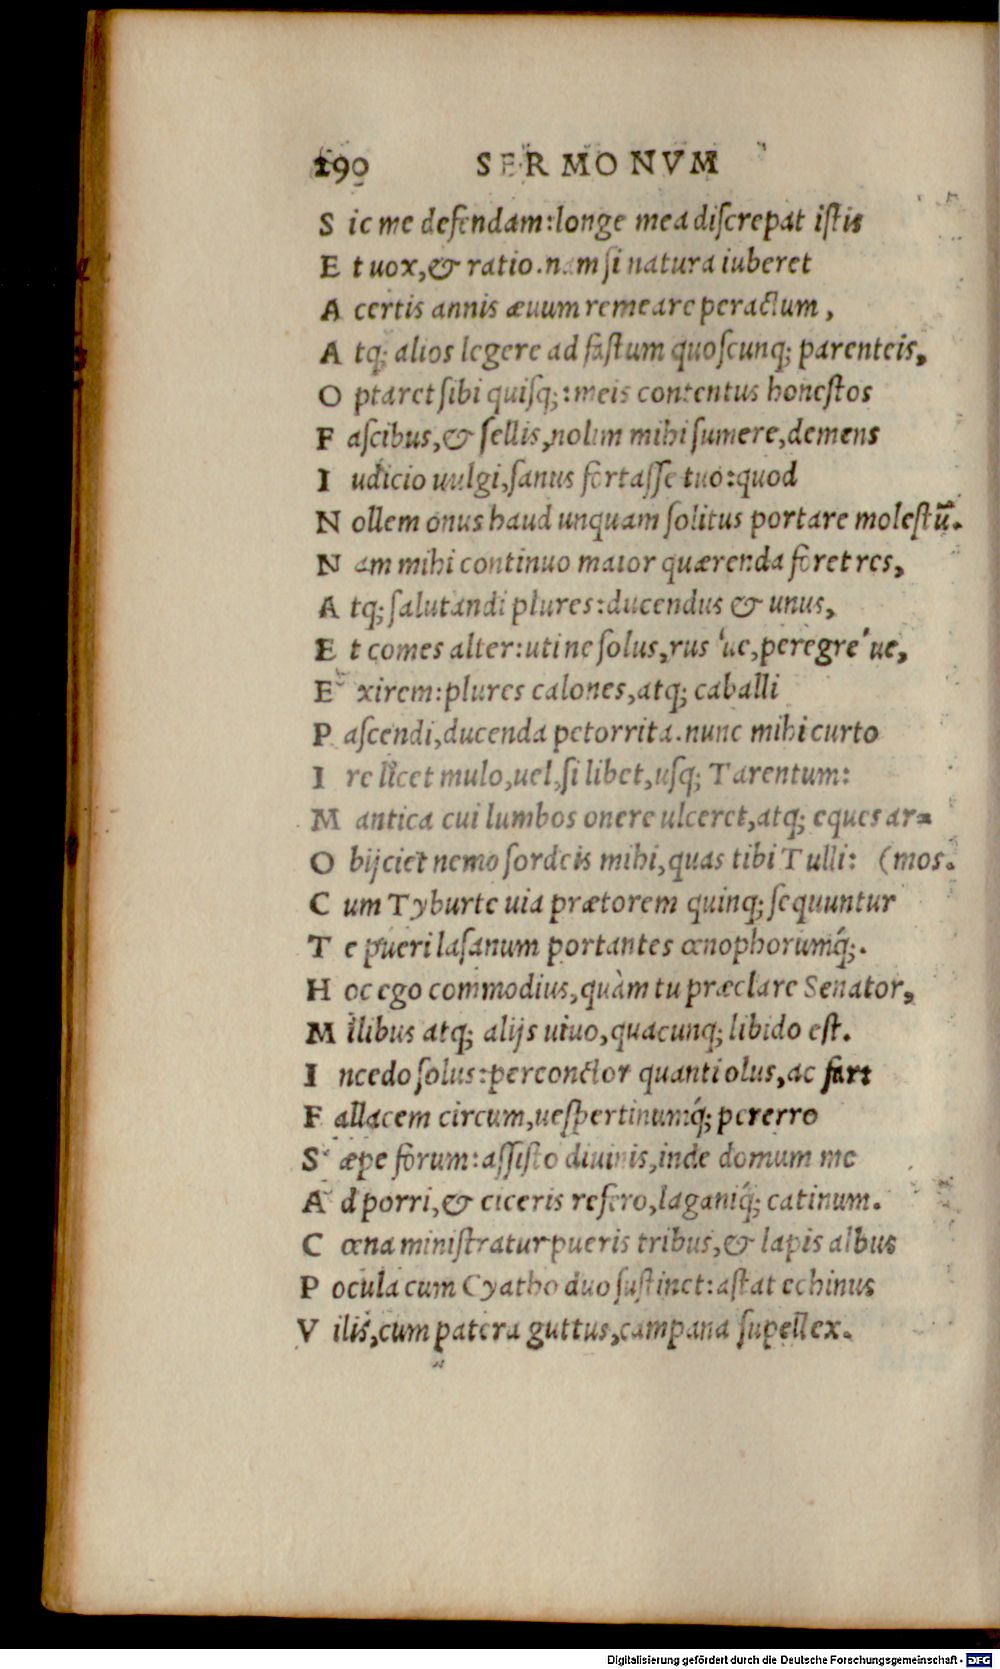 190 SERMONVM
S ic me defendam: longe mea discrepat istis
E t uox, & ratio. nam si natura iuberet
A certis annis æuum remeare peractum,
A tq; alios legere ad fastum quoscunq; parenteis,
O ptaret sibi quisq;: meis contentus honestos
F ascibus, & sellis, nolim mihi sumere, demens
I udicio uulgi, sanus fortasse tuo: quod
N ollem onus haud unquam solitus portare molestū.
N am mihi continuo maior quærenda foret res,
A tq; salutandi plures: ducendus & unus,
E t comes alter: uti ne solus, rus 've, peregre' ue,
E xirem: plures calones, atq; caballi
P ascendi, ducenda petorrita. nunc mihi curto
I re licet mulo, uel, si libet, usq; Tarentum:
M antica cui lumbos onere ulceret, atq; eques ar=
O bijciet nemo sordeis mihi, quas tibi Tulli: (mos.
C um Tyburte uia prætorem quinq; sequuntur
T e pueri lasanum portantes œnophorumq́;.
H oc ego commodius, quàm tu præclare Senator,
M ilibus atq; alijs uiuo, quacunq; libido est.
I ncedo solus: perconctor quanti olus, ac far:
F allacem circum, uespertinumq́; pererro
S æpe forum: assisto diuinis, inde domum me
A d porri, & ciceris refero, laganiq́; catinum.
C œna ministratur pueris tribus, & lapis albus
P ocula cum Cyatho duo sustinet: astat echinus
V ilis, cum patera guttus, campana supellex.
Digitalisierung gefördert durch die Deutsche Forschungsgemeinschaft - DFG